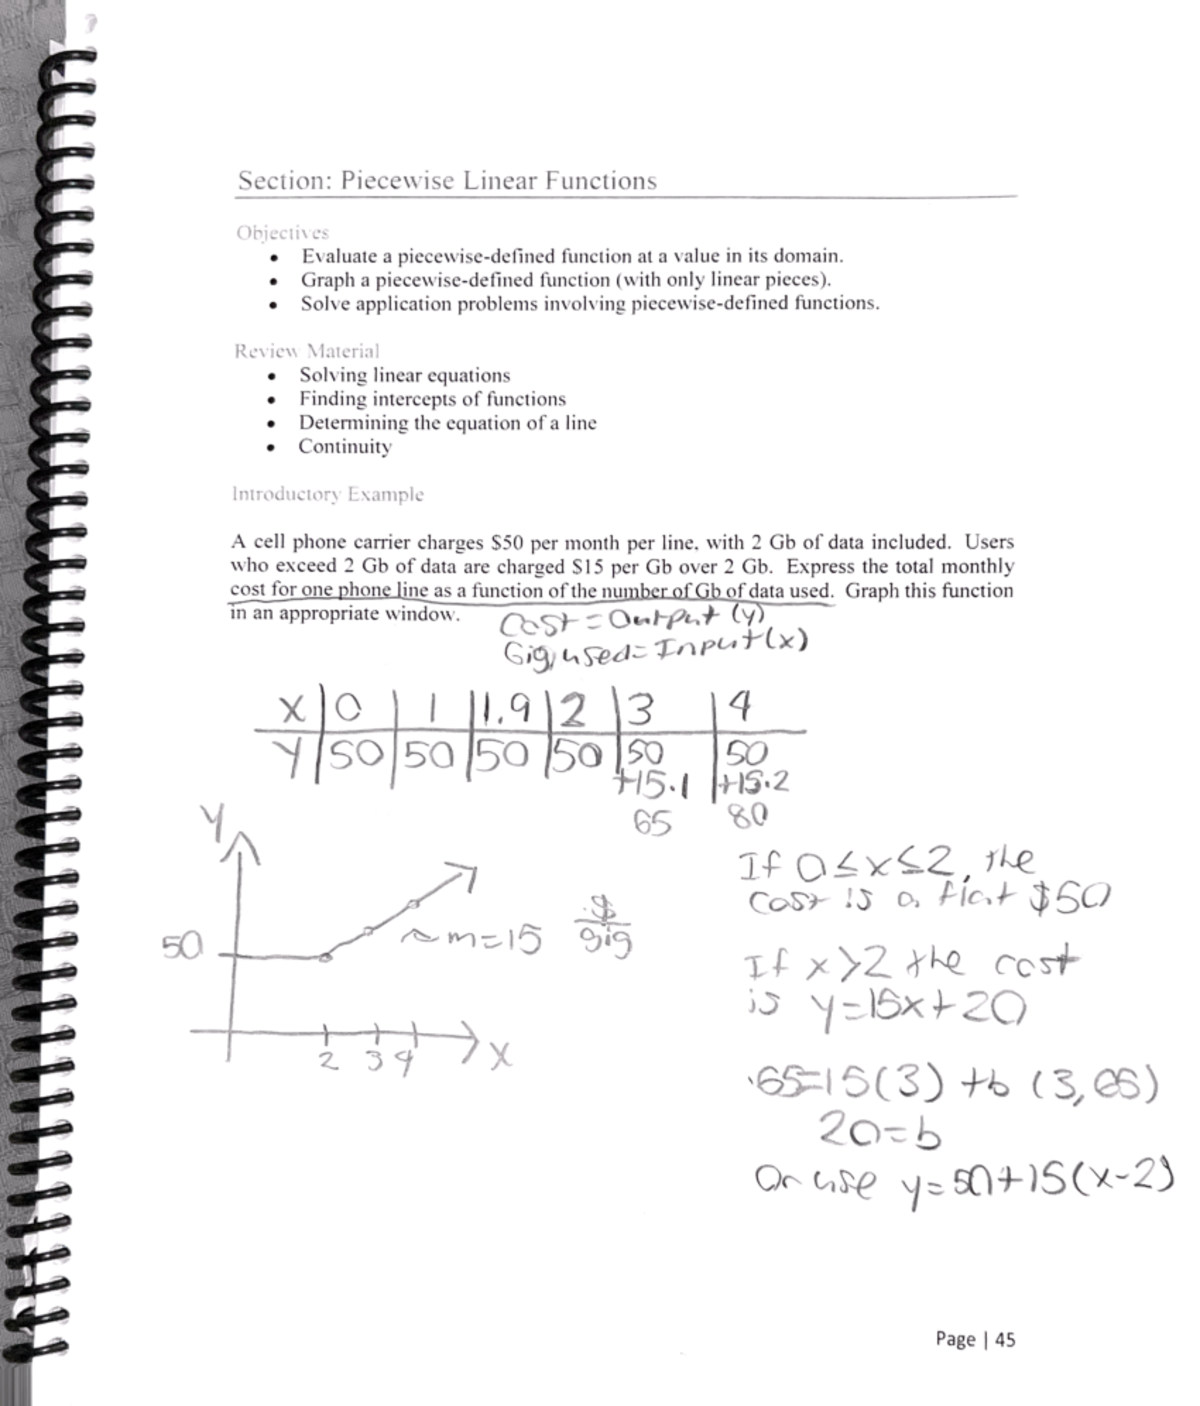 Section: Piecewise Linear Functions
Objectives
• Evaluate a piecewise-defined function at a value in its domain.
• Graph a piecewise-defined function (with only linear pieces).
• Solve application problems involving piecewise-defined functions.
Review Material
• Solving linear equations
• Finding intercepts of functions
• Determining the equation of a line
• Continuity
Introductory Example
A cell phone carrier charges $50 per month per line, with 2 Gb of data included. Users
who exceed 2 Gb of data are charged $15 per Gb over 2 Gb. Express the total monthly
cost for one phone line as a function of the number of Gb of data used. Graph this function
in an appropriate window.
Cost = Output (y)
Gig used = Input (x)
X | 0 | 1 | 1.9 | 2 | 3 | 4
Y | 50 | 50 | 50 | 50 | 50 | 50
+15·1 +15·2
65 80
Y
50
m=15 $/gig
2 3 4 X
If 0≤x≤2, the
cost is a flat $50
If x>2 the cost
is y=15x+20
65=15(3) +b (3,65)
20=b
Or use y=50+15(x-2)
Page | 45